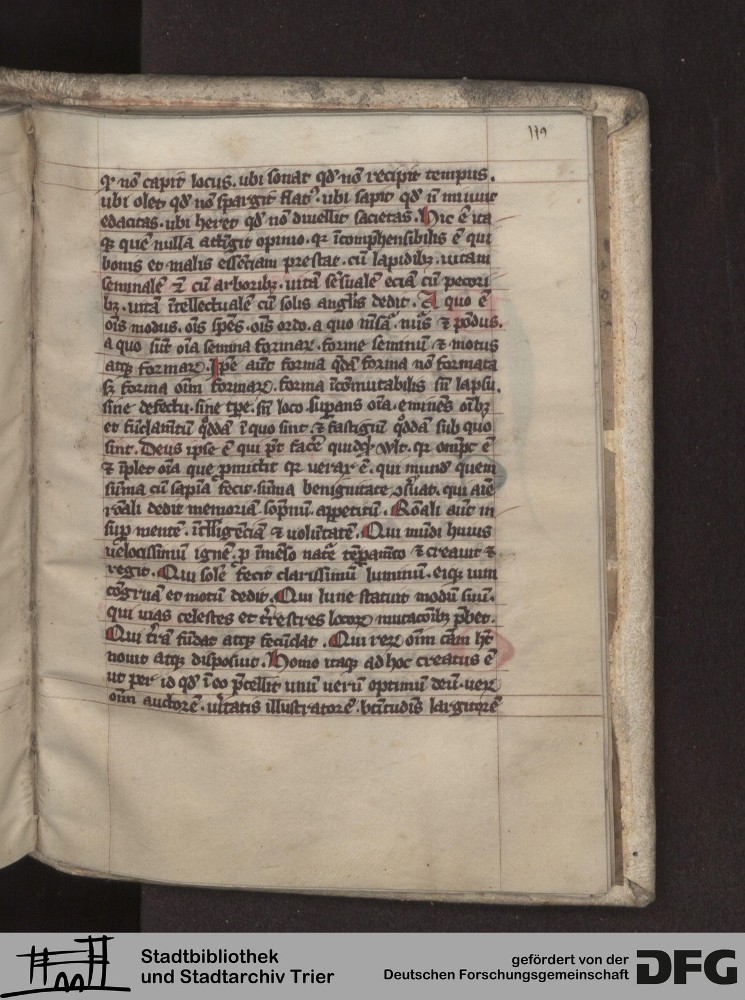 119
qͥ nō capit locus. ubi sonat qd' nō recipit tempus.
ubi olet qd' nō spargit flatꝰ. ubi sapit qd' n̄ minuit
edacitas. ubi heret qd' nō divellit societas. Hic ē ita
qꝫ quē nulla attīgit opinio. qr īcomp̄hensibilis ē qui
bonis et malis essētiam prestat. cū lapidibꝫ. uitam
seminalē ⁊ cū arboribꝫ. uitā sēsualē eciā cū pecori
bꝫ. uitā ītellectualē cū solis anglīs dedit. A quo ē
oīs modus. oīs spēs. oīs ordo. a quo mīsā. nūs ⁊ pōdus.
a quo sūt oīa semina formaꝝ. forme seminū ⁊ motus
atqꝫ formaꝝ. Ipē aūt forma qdā forma nō formata
sꝫ forma oīm formaꝝ. forma īcōmutabilis sn̄ lapsu.
sine defectu. sine tpe. sn̄ loco. suꝑans oīa. eminēs oībꝫ
et fūdamtū qddā ī quo sint. ⁊ fastigiū qddā sub quo
sint. Deus ipse ē qui pt̄ facē quidqꝫ vlt. qr omp̄c ē
⁊ īplet oīa que ꝓmittit qr uerax ē. qui mund' quem
sūma cū sapīa fecit. sūma benignitate ꝯseruat. qui aīe
rōali dedit memoriā. sopnū. appetitū. Rōali aūt in
suꝑ mentē. ītelligēciā ⁊ uolūtatē. Qui mūdi huius
uelocissimū ignē. ꝑ īmēso natē tēꝑamēto ⁊ creauit ⁊
regit. Qui solē fecit clarissimū luminū. eiqꝫ uim
cōgruā et motū dedit. Qui lune statuit modū suū.
qui uias celestes et trēstres locoꝝ mutacoībꝫ p̄bet.
Qui trā fūdat atqꝫ fecūdat. Qui reꝝ oīm cām ht̄
nouit atqꝫ disposuit. Homo itaqꝫ ad hoc creatus ē
ut per id qd' ī eo p̄cellit unū uerū optimū deū. ueꝝ
oīm auctorē. uītatis illustratorē. btītudīs largitorē
Stadtbibliothek
und Stadtarchiv Trier
gefördert von der
Deutschen Forschungsgemeinschaft
DFG